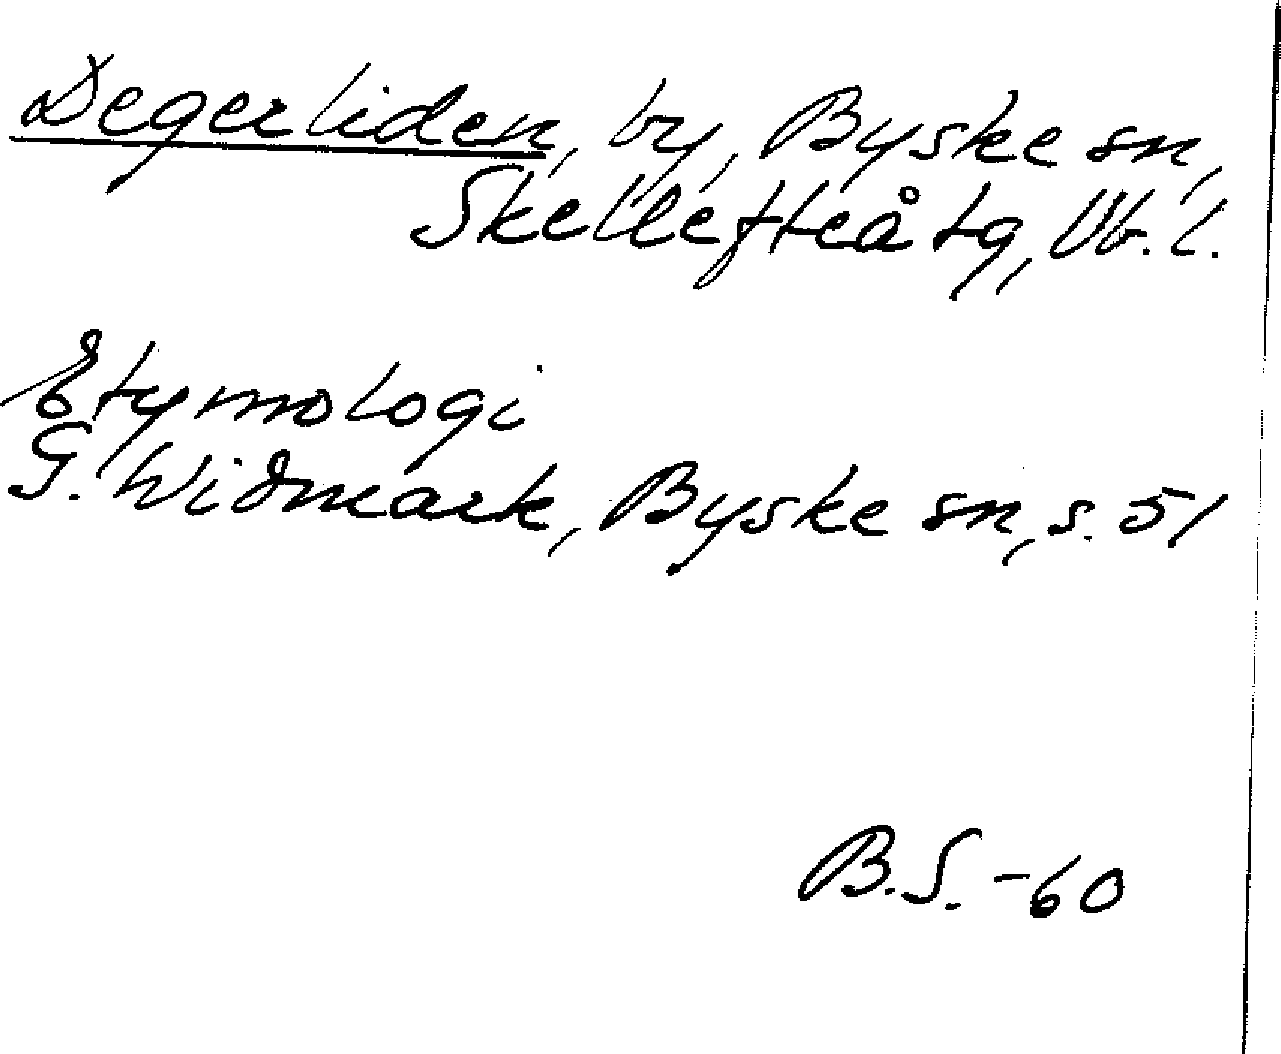 Degerliden, by, Byske sn,
Skellefteå tg, Vb. l.
Etymologi
G. Widmark, Byske sn, s. 51
B.S. -60